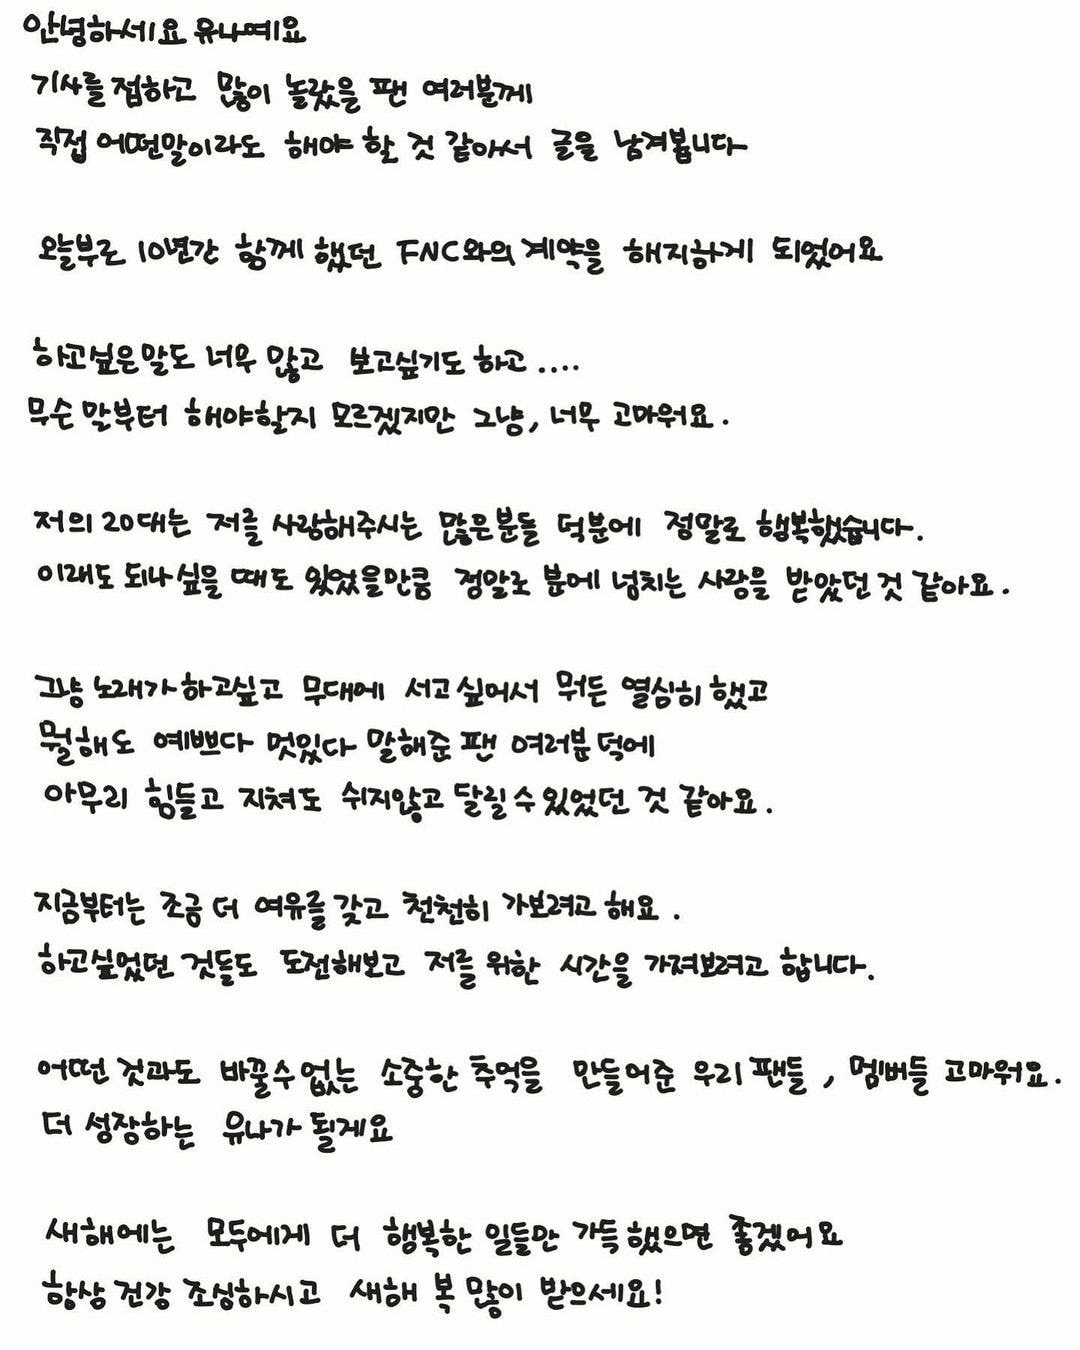 안녕하세요 유나예요
기사를 접하고 많이 놀랐을 팬 여러분께
직접 어떤말이라도 해야 할 것 같아서 글을 남겨봅니다
오늘부로 10년간 함께 했던 FNC와의 계약을 해지하게 되었어요
하고싶은말도 너무 많고 보고싶기도 하고....
무슨 말부터 해야할지 모르겠지만 그냥, 너무 고마워요.
저의 20대는 저를 사랑해주시는 많은분들 덕분에 정말로 행복했습니다.
이래도 되나 싶을 때도 있었을만큼 정말로 분에 넘치는 사랑을 받았던 것 같아요.
그냥 노래가 하고싶고 무대에 서고싶어서 뭐든 열심히 했고
뭘해도 예쁘다 멋있다 말해준 팬 여러분 덕에
아무리 힘들고 지쳐도 쉬지않고 달릴수있었던 것 같아요.
지금부터는 조금 더 여유를 갖고 천천히 가보려고 해요.
하고싶었던 것들도 도전해보고 저를 위한 시간을 가져보려고 합니다.
어떤 것과도 바꿀수 없는 소중한 추억을 만들어준 우리 팬들, 멤버들 고마워요.
더 성장하는 유나가 될게요
새해에는 모두에게 더 행복한 일들만 가득했으면 좋겠어요
항상 건강 조심하시고 새해 복 많이 받으세요!